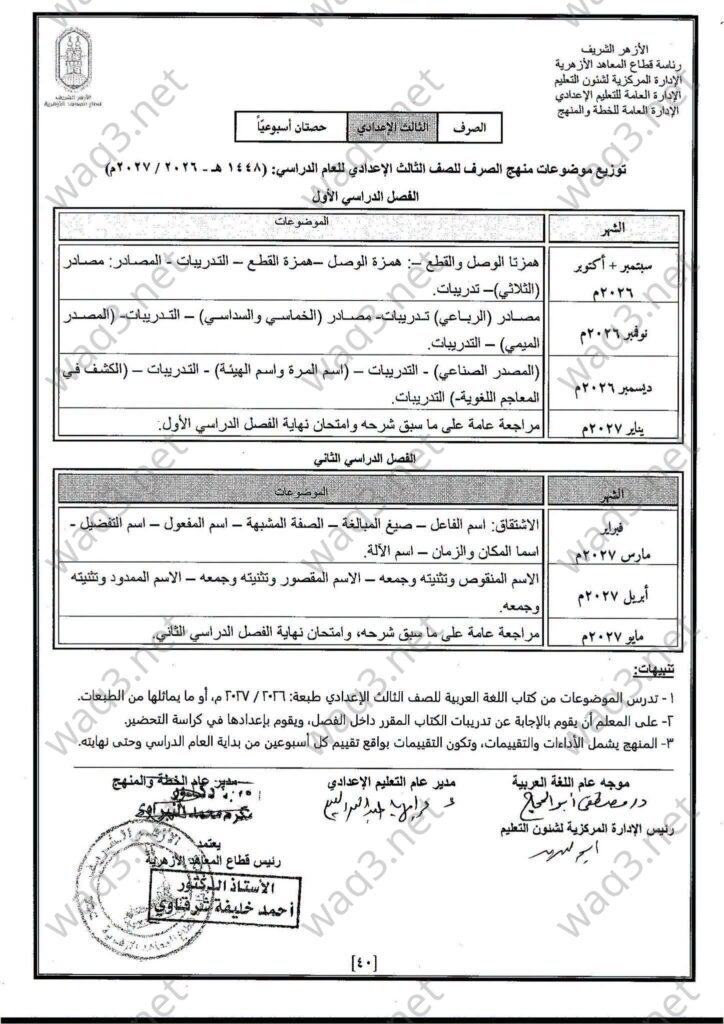 الأزهر الشريف
رئاسة قطاع المعاهد الأزهرية
الإدارة المركزية لشئون التعليم
الإدارة العامة للتعليم الإعدادي
الإدارة العامة للخطة والمنهج
الأزهر الشريف
قطاع المعاهد الأزهرية
الصرف
الثالث الإعدادي
حصتان أسبوعيًا
توزيع موضوعات منهج الصرف للصف الثالث الإعدادي للعام الدراسي: (١٤٤٨ هـ - ٢٠٢٦ / ٢٠٢٧م)
الفصل الدراسي الأول
الشهر
الموضوعات
سبتمبر + أكتوبر
٢٠٢٦م
همزتا الوصل والقطع –: همزة الوصل –همزة القطع – التدريبات - المصادر: مصادر
(الثلاثي)– تدريبات.
نوفمبر ٢٠٢٦م
مصادر (الرباعي) تدريبات- مصادر (الخماسي والسداسي) – التدريبات- (المصدر
الميمي) – التدريبات.
ديسمبر ٢٠٢٦م
(المصدر الصناعي) - التدريبات – (اسم المرة واسم الهيئة) - التدريبات – (الكشف في
المعاجم اللغوية-) التدريبات.
يناير ٢٠٢٧م
مراجعة عامة على ما سبق شرحه وامتحان نهاية الفصل الدراسي الأول.
الفصل الدراسي الثاني
الشهر
الموضوعات
فبراير
مارس ٢٠٢٧م
الاشتقاق: اسم الفاعل – صيغ المبالغة – الصفة المشبهة – اسم المفعول – اسم التفضيل -
اسما المكان والزمان – اسم الآلة.
أبريل ٢٠٢٧م
الاسم المنقوص وتثنيته وجمعه – الاسم المقصور وتثنيته وجمعه – الاسم الممدود وتثنيته
وجمعه.
مايو ٢٠٢٧م
مراجعة عامة على ما سبق شرحه، وامتحان نهاية الفصل الدراسي الثاني.
تنبيهات:
١- تدرس الموضوعات من كتاب اللغة العربية للصف الثالث الإعدادي طبعة: ٢٠٢٦/ ٢٠٢٧ م، أو ما يماثلها من الطبعات.
٢- على المعلم أن يقوم بالإجابة عن تدريبات الكتاب المقرر داخل الفصل، ويقوم بإعدادها في كراسة التحضير.
٣- المنهج يشمل الأداءات والتقييمات، وتكون التقييمات بواقع تقييم كل أسبوعين من بداية العام الدراسي وحتى نهايته.
موجه عام اللغة العربية
مدير عام التعليم الإعدادي
مدير عام الخطة والمنهج
رئيس الإدارة المركزية لشئون التعليم
يعتمد
رئيس قطاع المعاهد الأزهرية
الأستاذ الدكتور
أحمد خليفة شرقاوي
[٤٠]
waq3.net